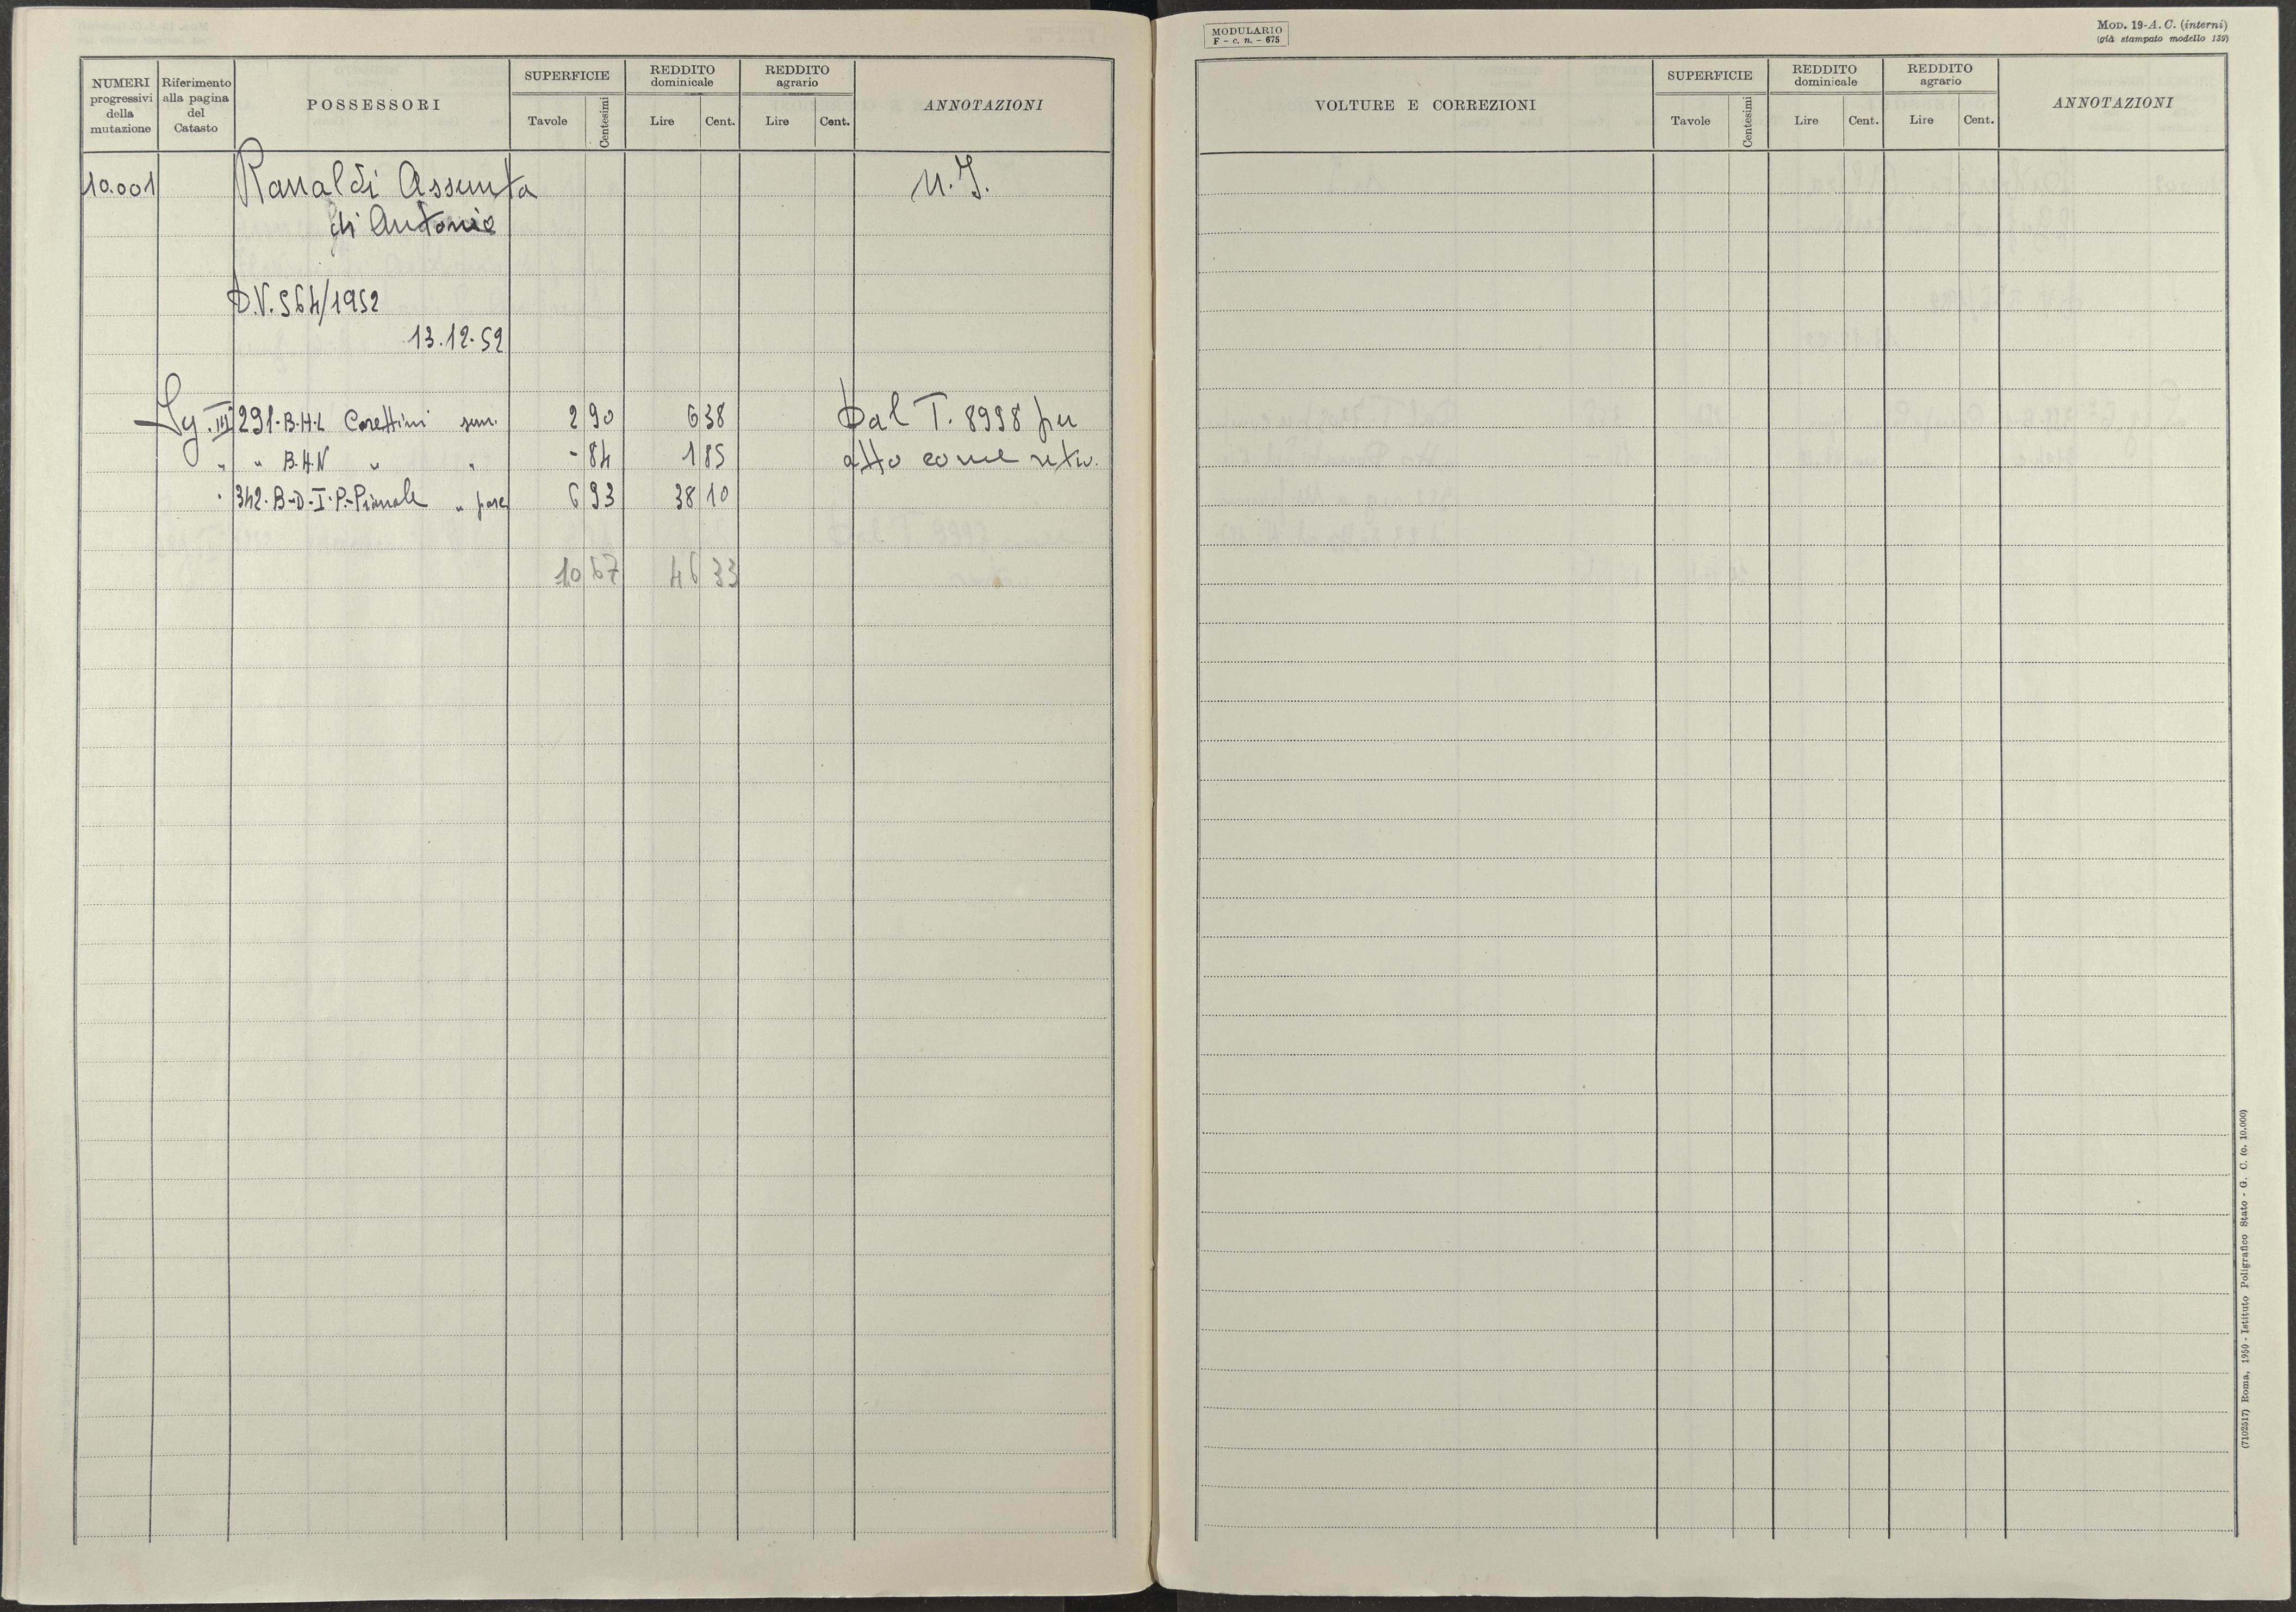 NUMERI progressivi della mutazione
Riferimento alla pagina del Catasto
POSSESSORI
SUPERFICIE
Tavole
Centesimi
REDDITO dominicale
Lire
Cent.
REDDITO agrario
Lire
Cent.
ANNOTAZIONI
10.001 Ranaldi Assunta N.I.
di Antonio
D.V. 564/1952
13.12.52
III 291-B-H-L Corettini sem. 2 90 6 38 Dal T. 8998 per
" " B.H.N " " - 84 1 85 atto come retro.
" 342-B-D-I-P- " pasc 6 93 38 10
10 67 46 33
MODULARIO
F - c. n. - 675
MOD. 19-A. C. (interni)
(già stampato modello 139)
VOLTURE E CORREZIONI
SUPERFICIE
Tavole
Centesimi
REDDITO dominicale
Lire
Cent.
REDDITO agrario
Lire
Cent.
ANNOTAZIONI
(7102517) Roma, 1950 - Istituto Poligrafico Stato - G. C. (c. 10.000)